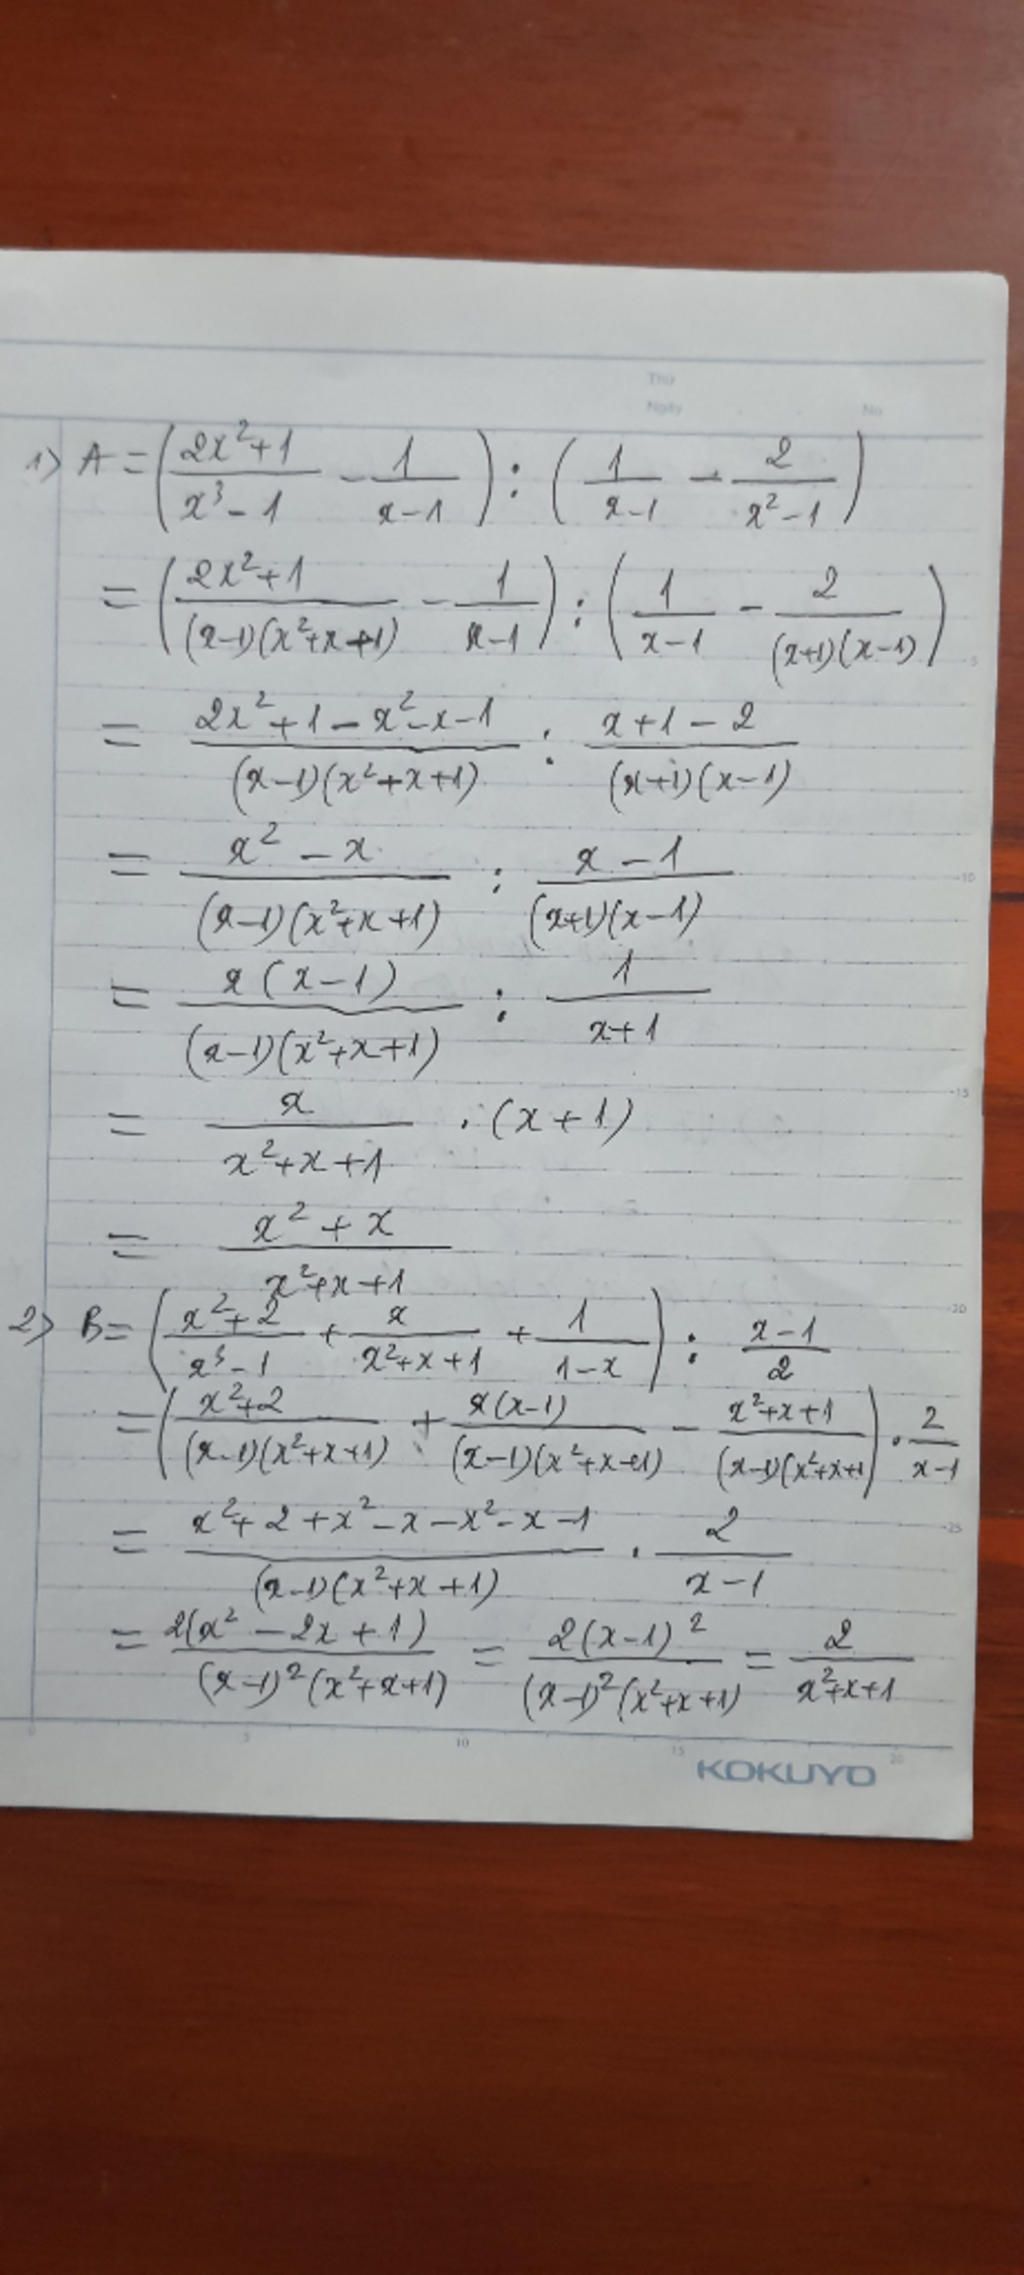 Thứ
Ngày No
1) A = (2x²+1 / x³-1 - 1 / x-1) : (1 / x-1 - 2 / x²-1)
= (2x²+1 / (x-1)(x²+x+1) - 1 / x-1) : (1 / x-1 - 2 / (x+1)(x-1))
= 2x²+1-x²-x-1 / (x-1)(x²+x+1) : x+1-2 / (x+1)(x-1)
= x²-x / (x-1)(x²+x+1) : x-1 / (x+1)(x-1)
= x(x-1) / (x-1)(x²+x+1) : 1 / x+1
= x / x²+x+1 . (x+1)
= x²+x / x²+x+1
2) B = (x²+2 / x³-1 + x / x²+x+1 + 1 / 1-x) : x-1 / 2
= (x²+2 / (x-1)(x²+x+1) + x(x-1) / (x-1)(x²+x+1) - x²+x+1 / (x-1)(x²+x+1)) . 2 / x-1
= x²+2+x²-x-x²-x-1 / (x-1)(x²+x+1) . 2 / x-1
= 2(x²-2x+1) / (x-1)²(x²+x+1) = 2(x-1)² / (x-1)²(x²+x+1) = 2 / x²+x+1
5 10 15 20
KOKUYO